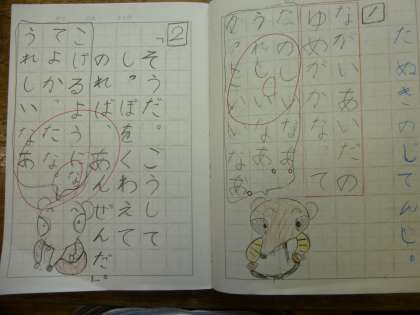 たぬきのじてんし。
1
ながいあいだの
ゆめがかなって
たのしいなあ。
うれしいなあ。
かっこいいなあ。
2
「そうだ。こうして
しっぽをくわえて
のれば、あんぜんだ。」
こげるようになっ
てよかったなあ
うれしい。なあ